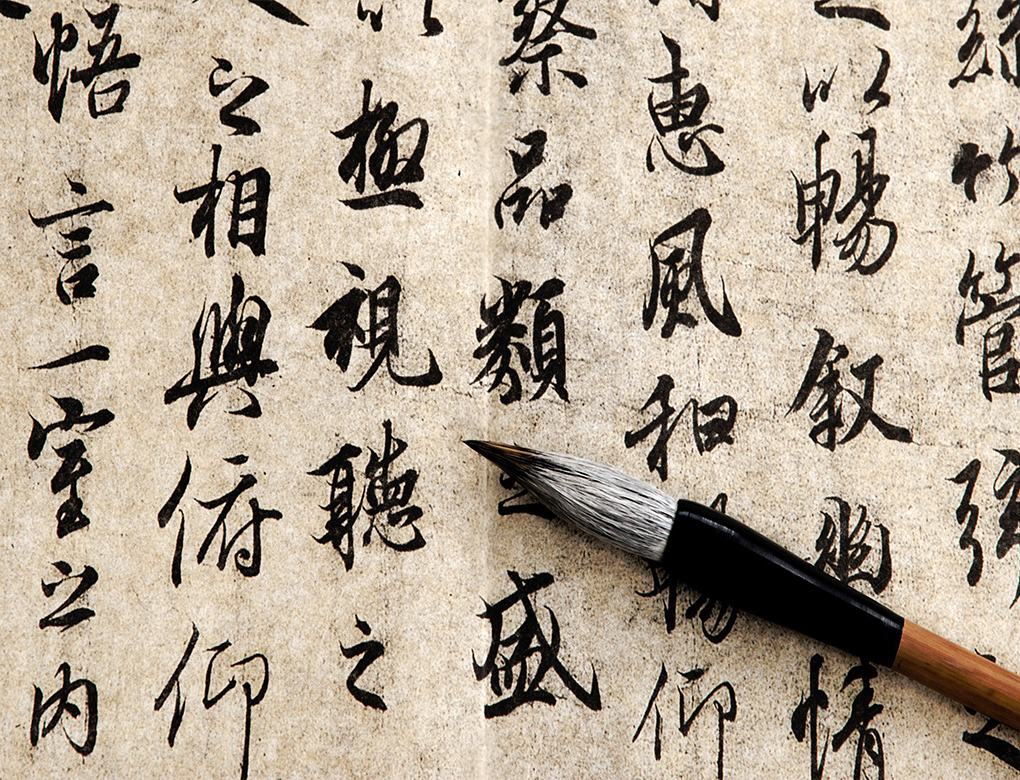 絲竹管弦之
以暢叙幽情
惠風和暢仰
察品類之盛
以極視聽之
之相與俯仰
悟言一室之内